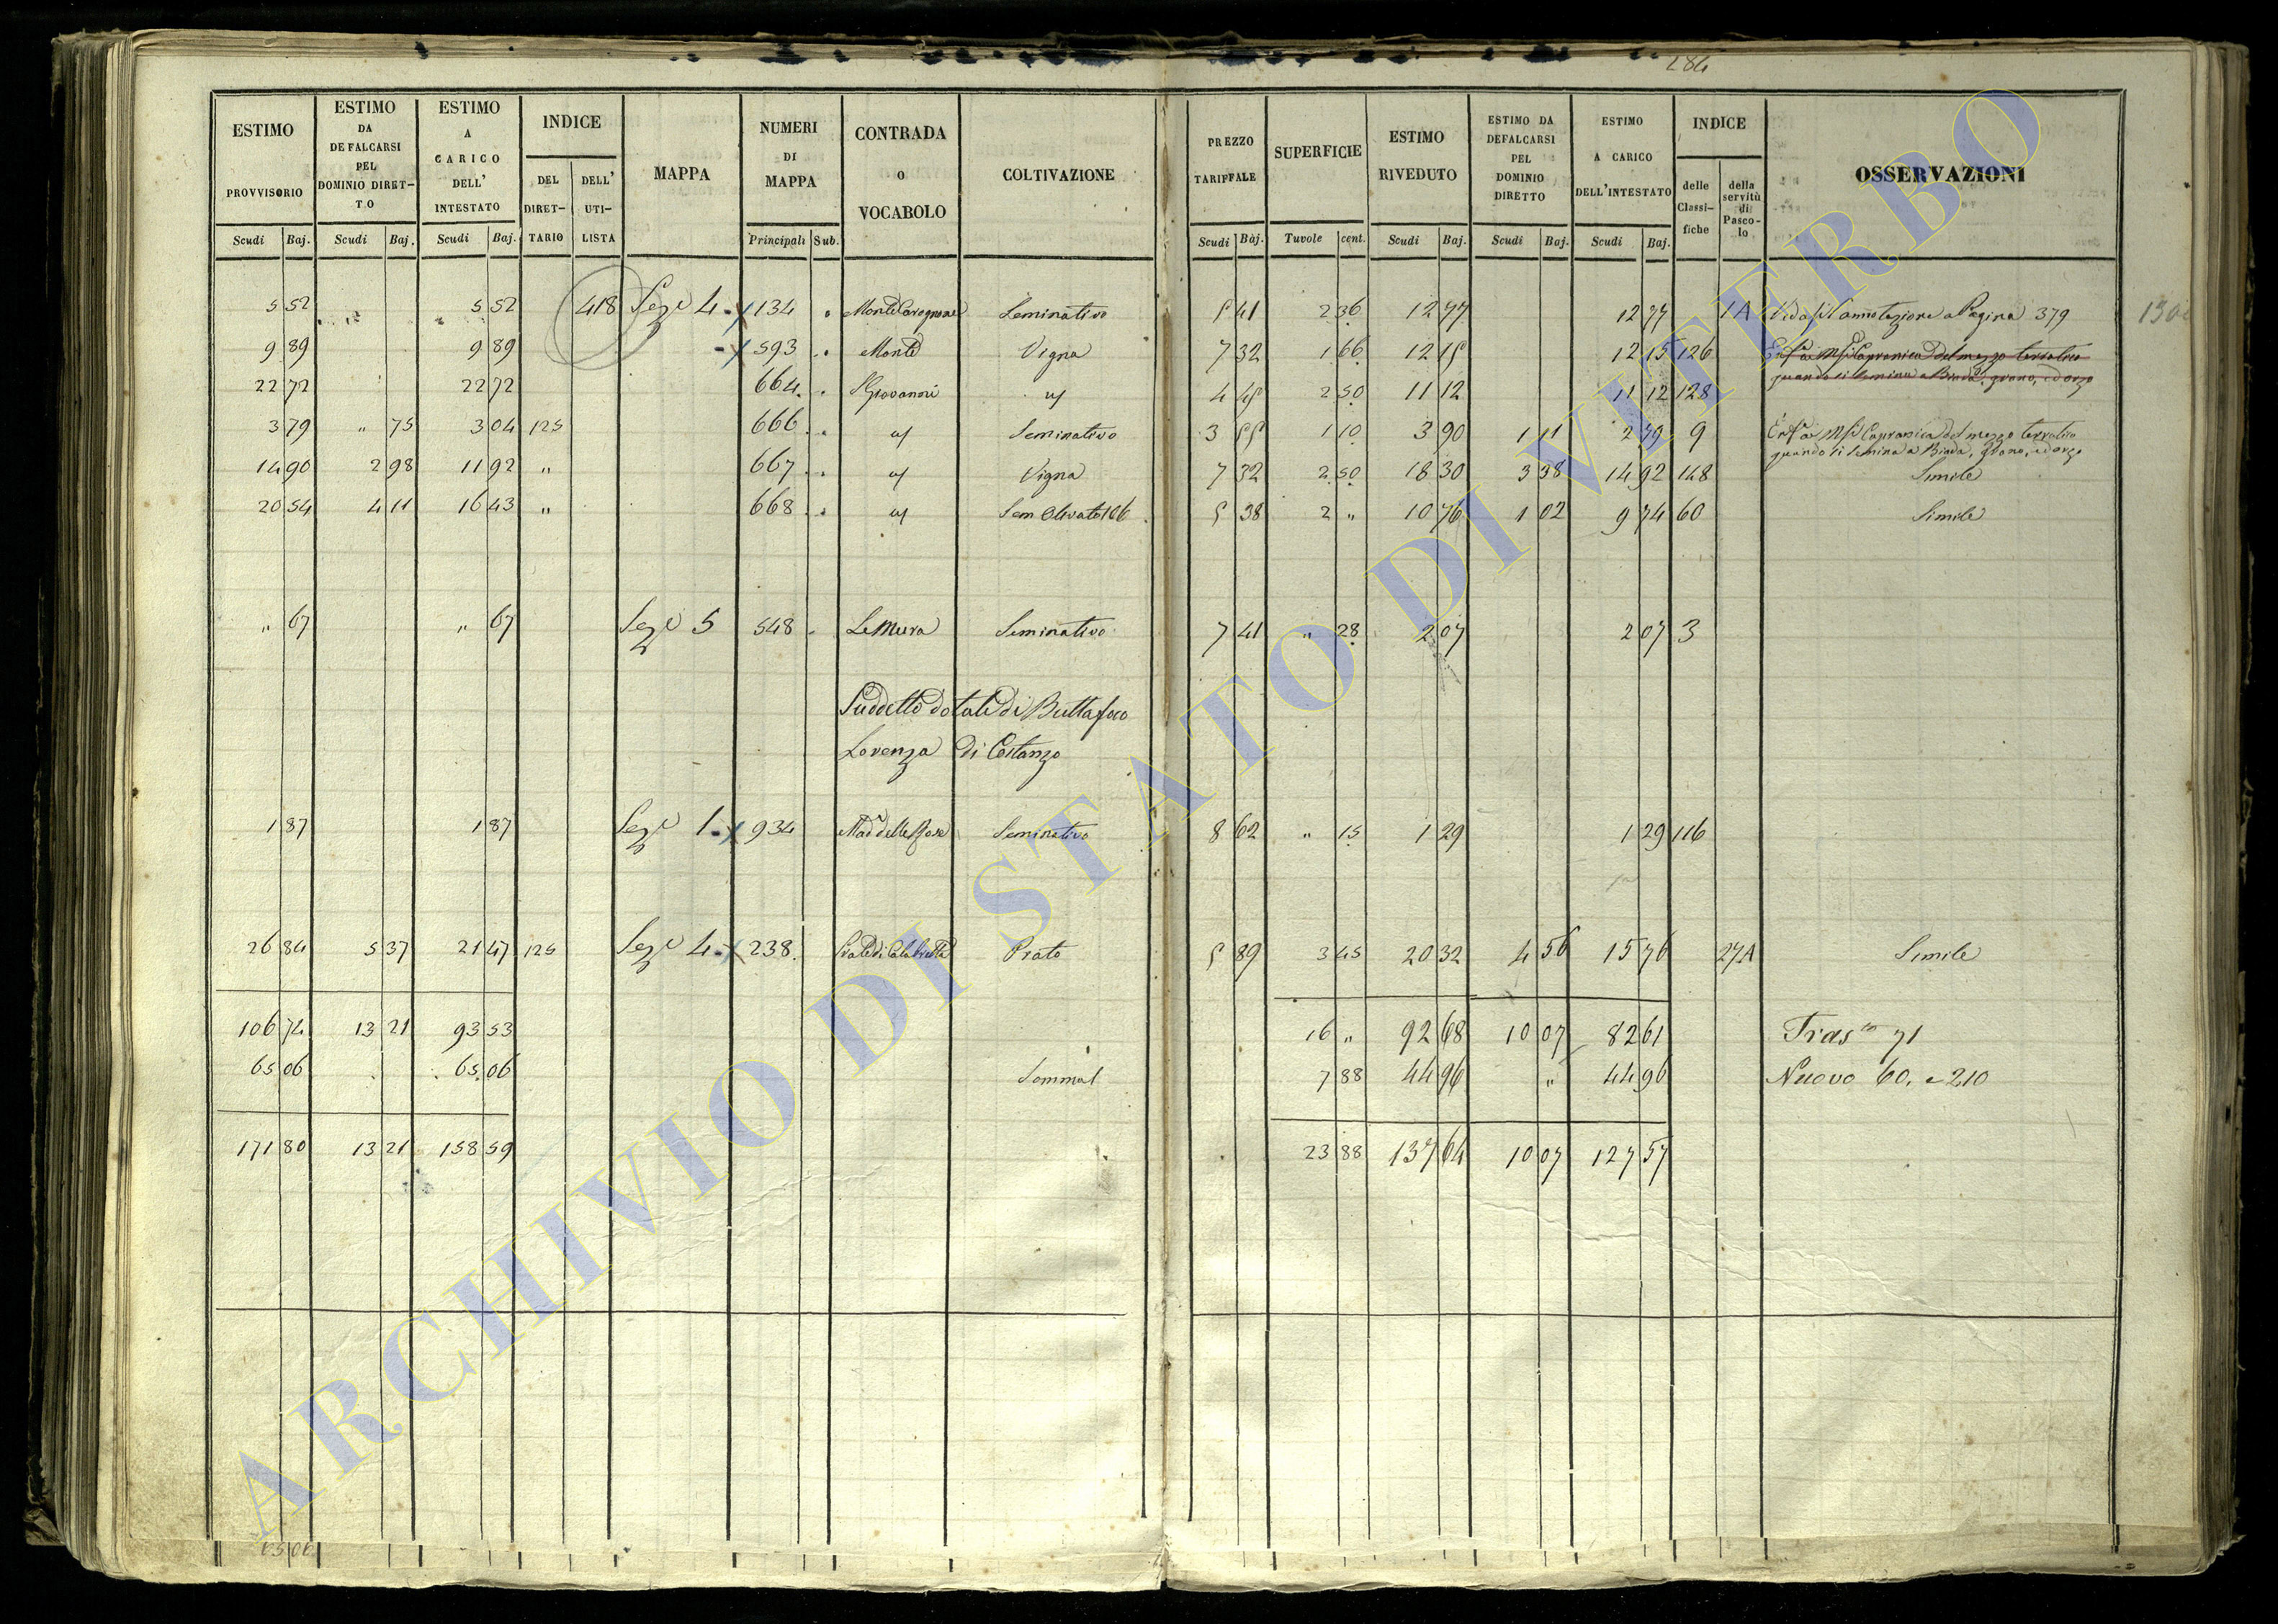 284
ESTIMO PROVVISORIO Scudi Baj. | ESTIMO DA DEFALCARSI PEL DOMINIO DIRET-TO Scudi Baj. | ESTIMO A CARICO DELL' INTESTATO Scudi Baj. | INDICE DEL DIRET-TARIO | DELL' UTI-LISTA | MAPPA | NUMERI DI MAPPA Principali Sub. | CONTRADA O VOCABOLO | COLTIVAZIONE | PREZZO TARIFFALE Scudi Baj. | SUPERFICIE Tavole cent. | ESTIMO RIVEDUTO Scudi Baj. | ESTIMO DA DEFALCARSI PEL DOMINIO DIRETTO Scudi Baj. | ESTIMO A CARICO DELL'INTESTATO Scudi Baj. | INDICE delle Classi-fiche | della servitù di Pasco-lo | OSSERVAZIONI
5 52 | 5 52 | 418 | Sez.e 4 | 134 | Seminativo | 5 41 | 2 36 | 12 77 | 12 77 | 1A | annotazione a Pagina 379
9 89 | 9 89 | 593 | Monte | Vigna | 7 32 | 1 66 | 12 15 | 12 15 | 126
22 72 | 22 72 | 664 | S Giovanni | 4 45 | 2 50 | 11 12 | 11 12 | 128
3 79 | " 75 | 3 04 | 125 | 666 | Seminativo | 3 55 | 1 10 | 3 90 | 1 11 | 2 79 | 9 | Capranica del mezzo terratico
quando si semina a Biada, grano, ed orzo
14 90 | 2 98 | 11 92 | " | 667 | Vigna | 7 32 | 2 50 | 18 30 | 3 38 | 14 92 | 148 | Simile
20 54 | 4 11 | 16 43 | " | 668 | Sem Olivato 106 | 5 38 | 2 " | 10 76 | 1 02 | 9 74 | 60 | Simile
" 67 | " 67 | Sez.e 5 | 548 | Le Mura | Seminativo | 7 41 | " 28 | 2 07 | 2 07 | 3
Suddetto dotale di Buttafoco
Lorenza di Costanzo
1 87 | 1 87 | Sez.e 1 | 934 | Mad.a delle Rose | Seminativo | 8 62 | " 15 | 1 29 | 1 29 | 116
26 84 | 5 37 | 21 47 | 125 | Sez.e 4 | 238 | Prato | 5 89 | 3 45 | 20 32 | 4 56 | 15 76 | 27A | Simile
106 74 | 13 21 | 93 53 | 16 " | 92 68 | 10 07 | 82 61 | Tras.to 71
65 06 | 65 06 | 7 88 | 44 96 | " | 44 96 | Nuovo 60, e 210
171 80 | 13 21 | 158 59 | 23 88 | 137 64 | 10 07 | 127 57
65 06
ARCHIVIO DI STATO DI VITERBO